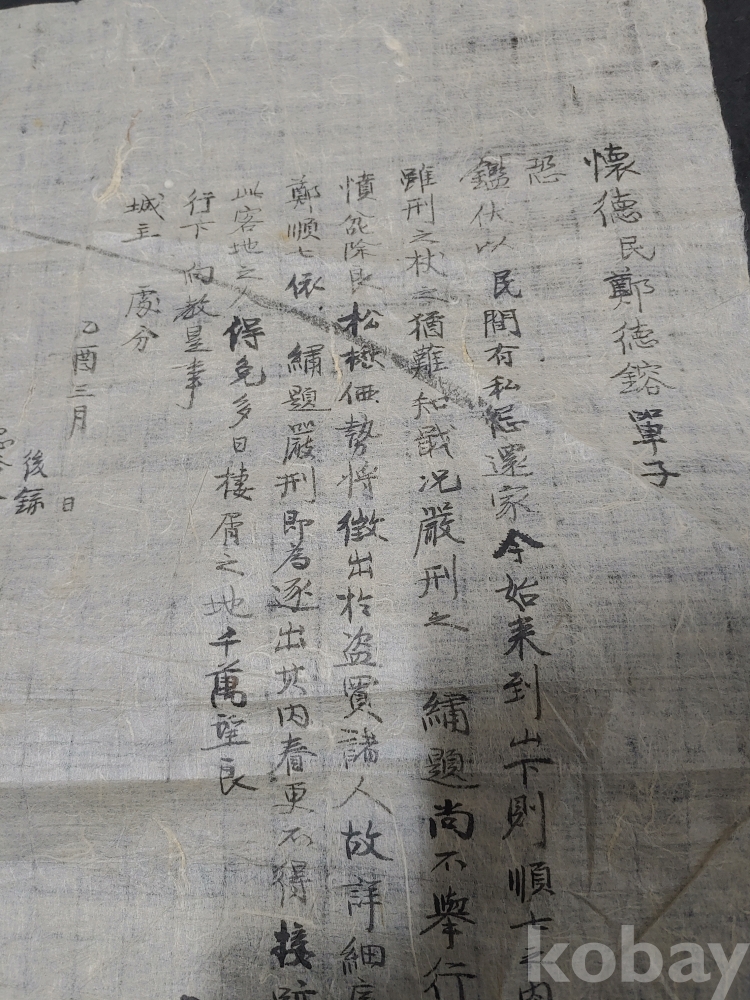 懷德民鄭德鎔單子
恐
鑑伏以民間有私還家今始来到山下則順七之内
雖刑之杖之猶難知戢況嚴刑之 繡題尚不擧行
憤除良松價勢将徵出於盗買諸人故詳細
鄭順七依 繡題嚴刑即為逐出其内眷更不得接跡
此客地之人得免多日棲屑之地千萬望良
行下向教是事
城主 處分
乙酉三月 日
後錄
kobay